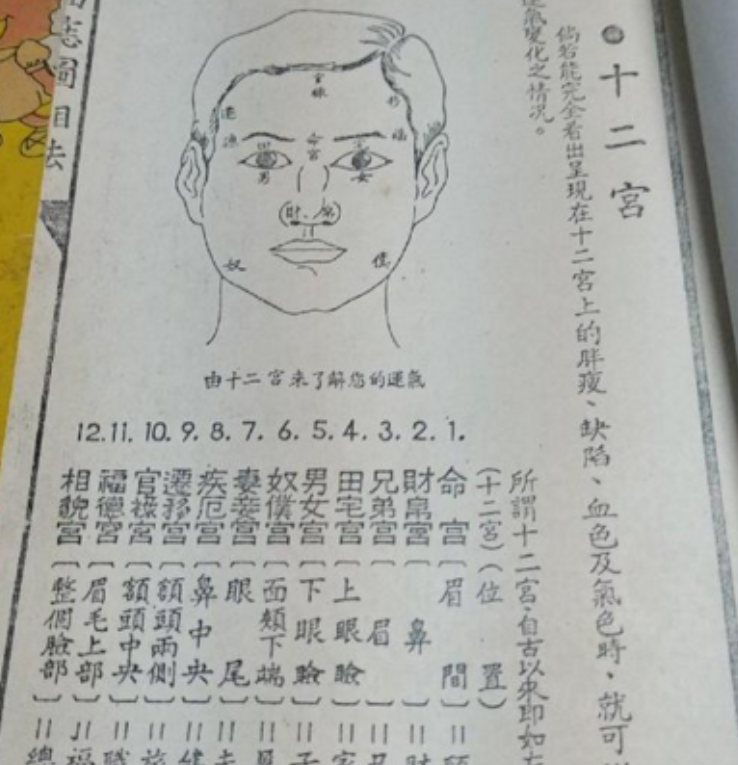 十二宮
倘若能完全看出呈現在十二宮上的胖瘦、缺陷、血色及氣色時、就可
氣變化之情況。
圖相法
官祿
遷
移
福
命宮
田
宅
男
女
財
帛
奴
僕
由十二宮來了解您的運氣
所謂十二宮、自古以來即如
(十二宮)(位置)
1. 命宮〔眉間〕=
2. 財帛宮〔鼻〕=財
3. 兄弟宮〔眉〕=兄
4. 田宅宮〔上眼瞼〕=家
5. 男女宮〔下眼瞼〕=子
6. 奴僕宮〔面頰下端〕=
7. 妻妾宮〔眼尾〕=夫
8. 疾厄宮〔鼻中央〕=
9. 遷移宮〔額頭兩側〕=旅
10. 官祿宮〔額頭中央〕=職
11. 福德宮〔眉毛上部〕=福
12. 相貌宮〔整個臉部〕=總